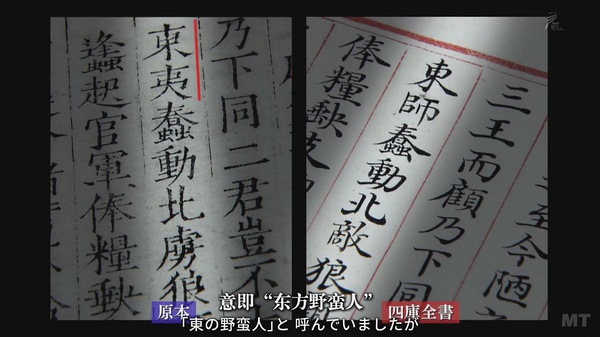 乃下同二君豈不
東夷蠢動北虜狼
蠭起官軍俸糧缺
至今陋
三王而顧乃下同
東師蠢動北敵狼
俸糧缺支
原本
意即“东方野蛮人”
四庫全書
「東の野蛮人」と 呼んでいましたが
MT